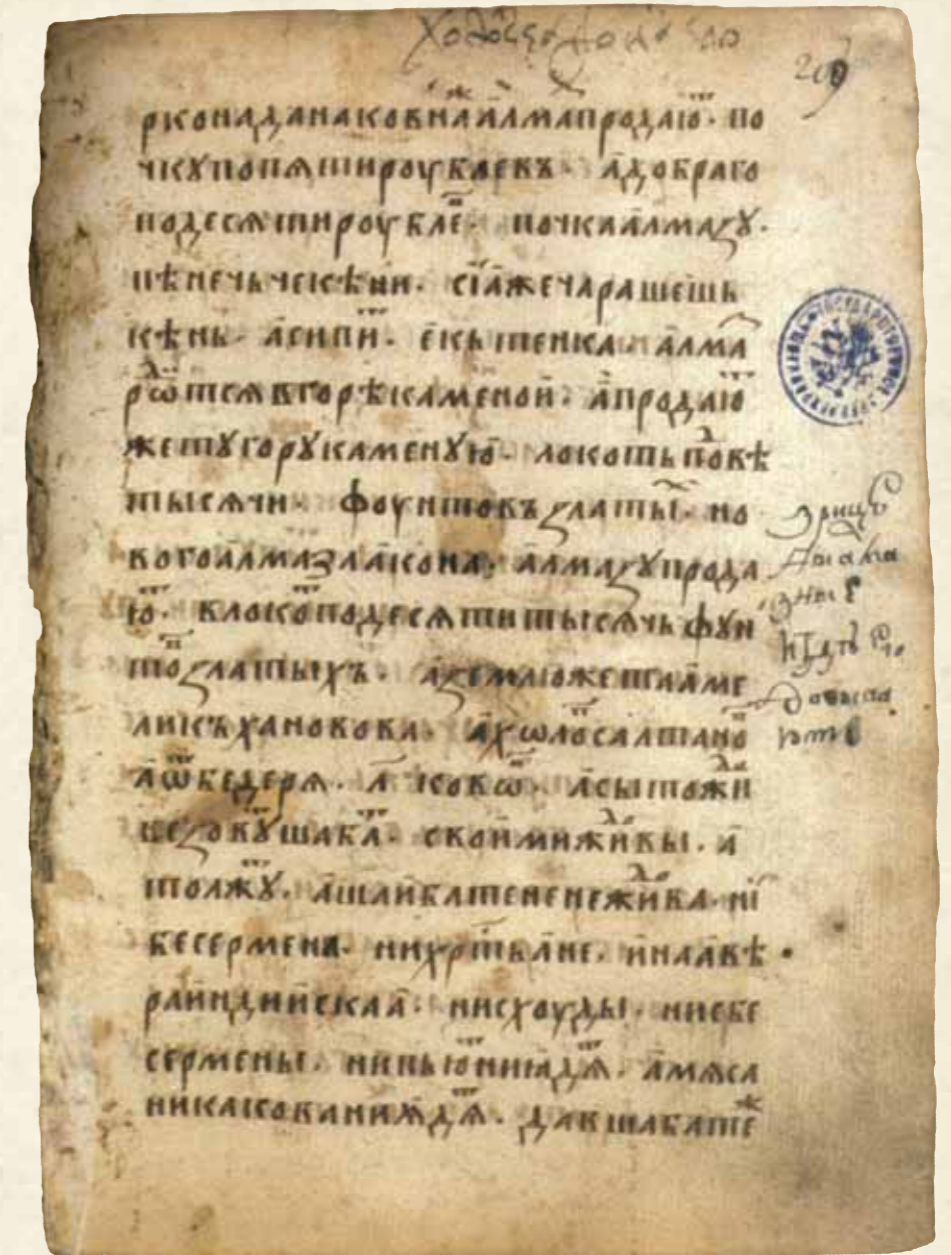 рконаданаковнаалмапродаю · по
чкꙋпопѧтироублевъ · адобраго
подесѧтироублеⷡ · почкаалмаꙁꙋ ·
пѣнечьчекѣни · сїажечарашешь
кѣнь · асипиⷮ · екътенка · алмаⷥ
рѡⷣтсѧвгорѣкаменой · апродаюⷮ
жетꙋгорꙋкаменꙋю · локотьпоⷣвѣ
тысѧчи · фоунтовъꙁлатыⷯ · но
вогоалмазлакона · алмаꙁꙋпрода
юⷮ · влокоⷮподесѧтитысѧчьфꙋн
тоⷡꙁлатыхъ · аꙁемлюжетаⷨме
ликъхановова · ахѡлоⷫсалтаноⷡ
аѿбедерѧ · л҃ · ковѡⷡ · асытожиⷣ
ꙁовꙋⷮшаваⷮ · своимижиⷣвы · а
толжꙋⷮ · ашаибатененежиⷣва · ни
бесермена · нихрⷭтьане · инаавѣ
раиндиискаа · нисхоуды · нисбе
серменьи · нипьюⷮниꙗдѧⷮ · амѧса
никакованиꙗдѧⷮ · давшабатеⷤ